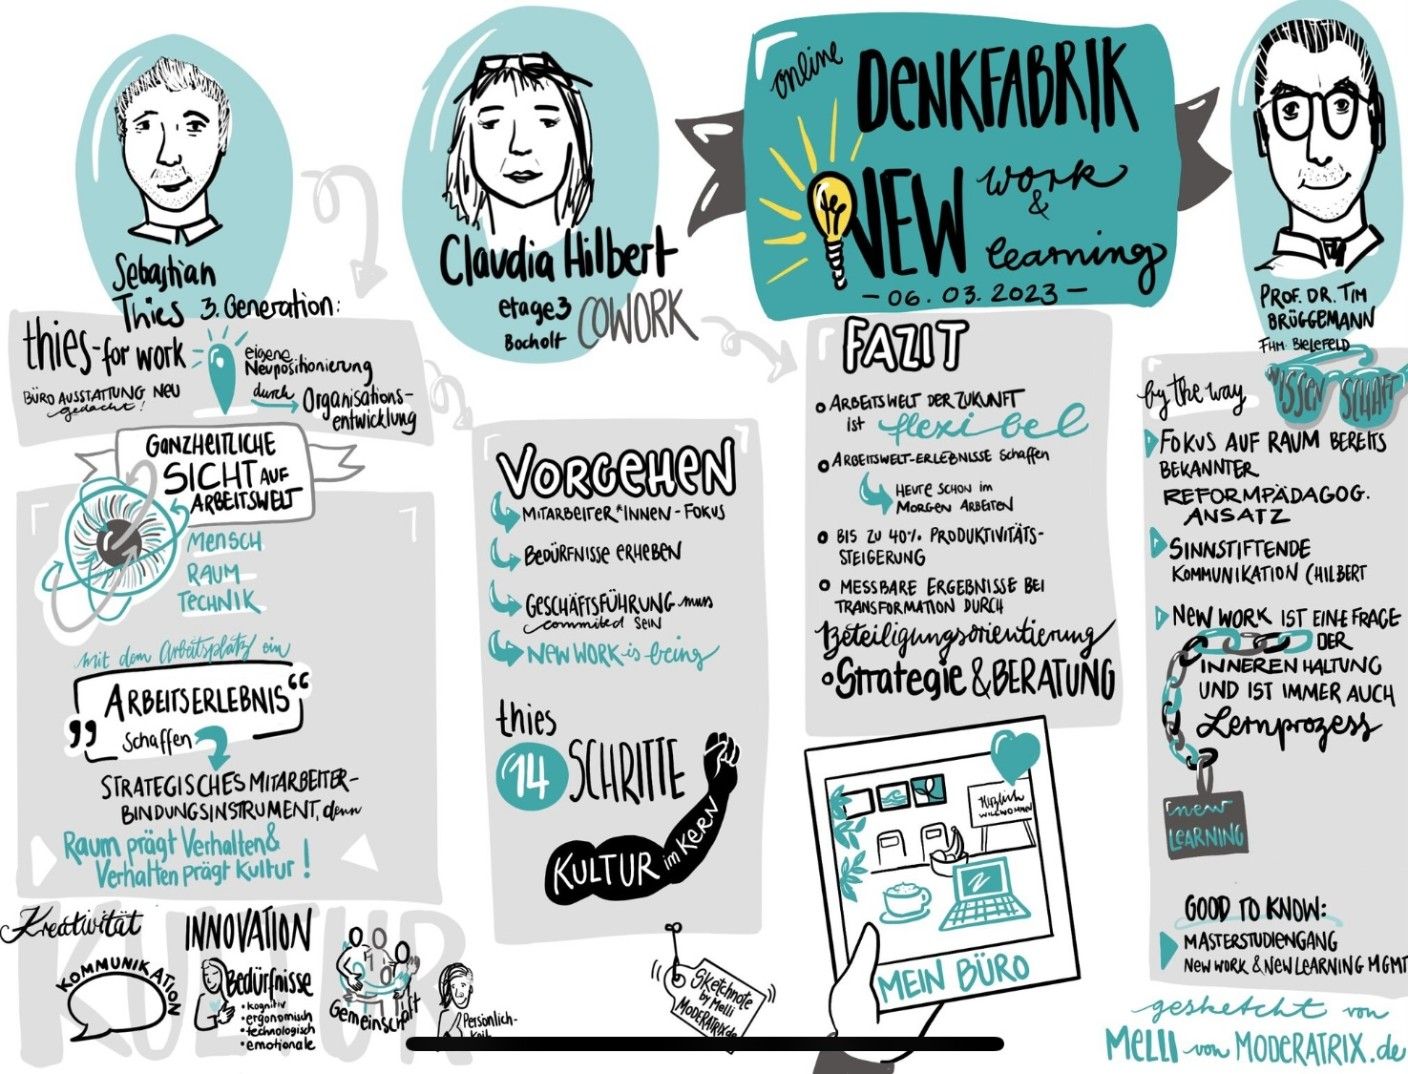 online
DENKFABRIK
NEW work
&
learning
- 06. 03. 2023 -
Sebastian
Thies 3. Generation:
thies-for work
BÜRO AUSSTATTUNG NEU
gedacht!
eigene
Neupositionierung
durch
Organisations-
entwicklung
GANZHEITLICHE
SICHT AUF
ARBEITSWELT
MENSCH
RAUM
TECHNIK
mit dem Arbeitsplatz ein
„ARBEITSERLEBNIS“
schaffen
STRATEGISCHES MITARBEITER-
BINDUNGSINSTRUMENT, denn
Raum prägt Verhalten &
Verhalten prägt Kultur!
KULTUR
Kreativität
KOMMUNIKATION
INNOVATION
Bedürfnisse
• kognitiv
• ergonomisch
• technologisch
• emotionale
Gemeinschaft
Persönlich-
keit
Claudia Hilbert
etage3
Bocholt
COWORK
VORGEHEN
MITARBEITER*INNEN-FOKUS
BEDÜRFNISSE ERHEBEN
GESCHÄFTSFÜHRUNG muss
commited SEIN
NEW WORK is being
thies
14 SCHRITTE
KULTUR im KERN
Sketchnote
by Melli
MODERATRIX.de
FAZIT
ARBEITSWELT DER ZUKUNFT
ist flexibel
ARBEITSWELT-ERLEBNISSE schaffen
HEUTE SCHON im
MORGEN ARBEITEN
BIS ZU 40% PRODUKTIVITÄTS-
STEIGERUNG
MESSBARE ERGEBNISSE BEI
TRANSFORMATION DURCH
Beteiligungsorientierung
Strategie & BERATUNG
Herzlich
WILLKOMMEN
MEIN BÜRO
PROF. DR. TIM
BRÜGGEMANN
FHM BIELEFELD
by the way
WISSEN SCHAFT
FOKUS AUF RAUM BEREITS
BEKANNTER
REFORMPÄDAGOG.
ANSATZ
SINNSTIFTENDE
KOMMUNIKATION (HILBERT
NEW WORK IST EINE FRAGE
DER
INNEREN HALTUNG
UND IST IMMER AUCH
Lernprozess
new
LEARNING
GOOD TO KNOW:
MASTERSTUDIENGANG
NEW WORK & NEW LEARNING MGMT
gesketcht von
MELLI von MODERATRIX.de